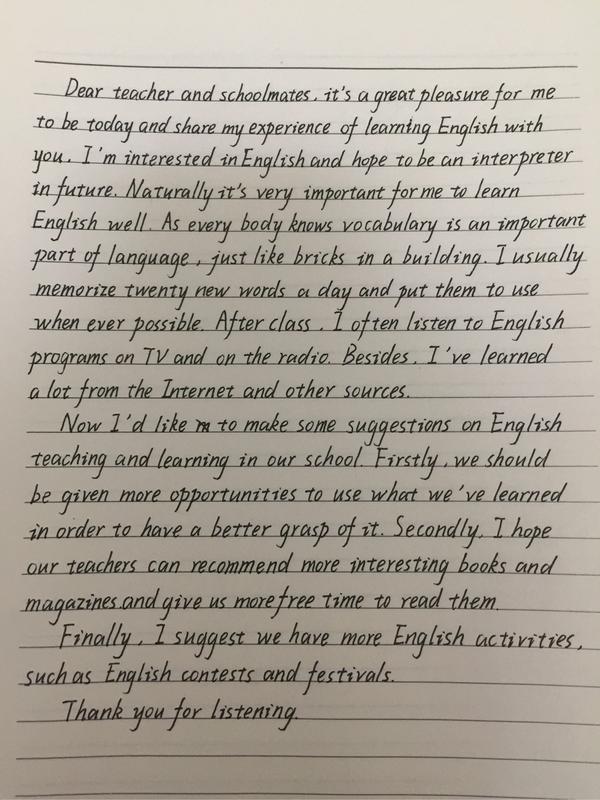 Dear teacher and schoolmates, it's a great pleasure for me
to be today and share my experience of learning English with
you. I'm interested in English and hope to be an interpreter
in future. Naturally it's very important for me to learn
English well. As every body knows vocabulary is an important
part of language, just like bricks in a building. I usually
memorize twenty new words a day and put them to use
when ever possible. After class, I often listen to English
programs on TV and on the radio. Besides, I've learned
a lot from the Internet and other sources.
Now I'd like to make some suggestions on English
teaching and learning in our school. Firstly, we should
be given more opportunities to use what we've learned
in order to have a better grasp of it. Secondly, I hope
our teachers can recommend more interesting books and
magazines.and give us more free time to read them.
Finally, I suggest we have more English activities,
such as English contests and festivals.
Thank you for listening.